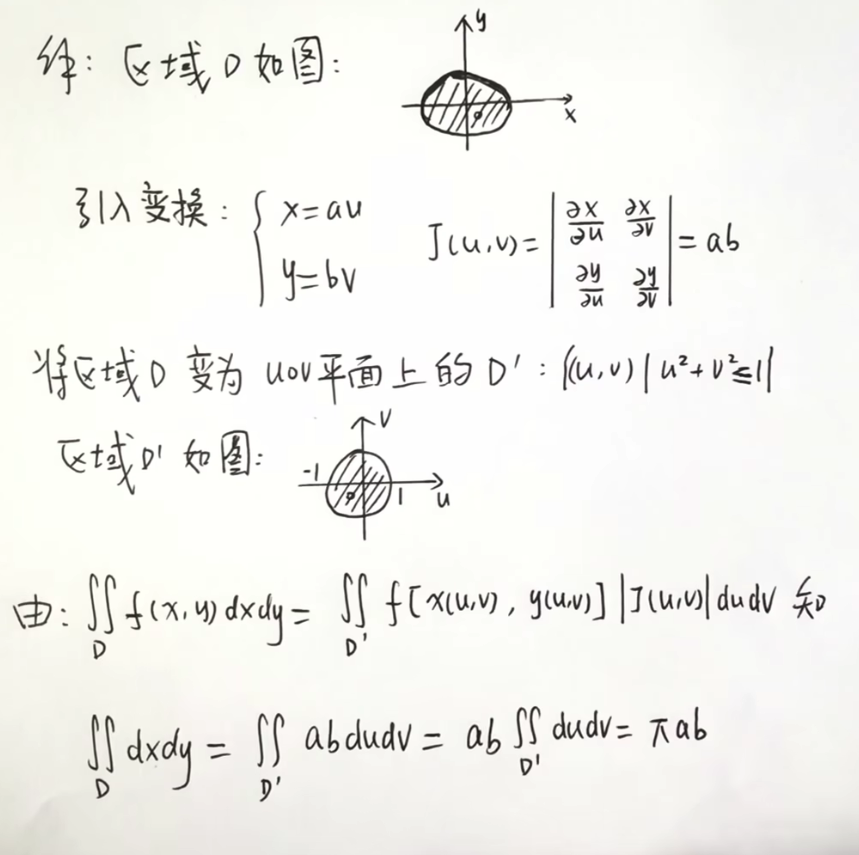 解: 区域 D 如图:
y
x
D
引入变换: { x=au y=bv J(u,v)= | ∂x/∂u ∂x/∂v ∂y/∂u ∂y/∂v | = ab
将区域 D 变为 uov平面上的 D': {(u,v) | u²+v²≤1}
区域D' 如图:
v
-1 1 u
D
由: ∬_D f(x,y) dxdy = ∬_D' f[x(u,v), y(u,v)] |J(u,v)| dudv 知
∬_D dxdy = ∬_D' abdudv = ab ∬_D' dudv = πab